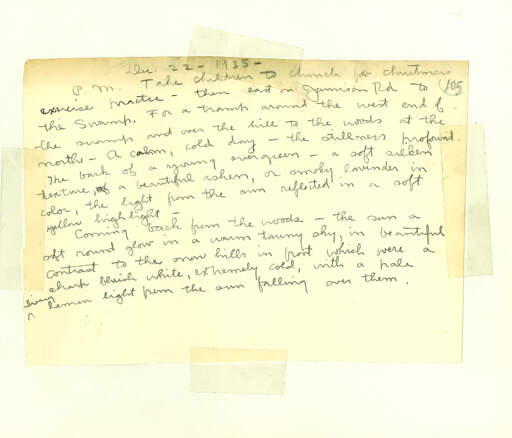 Dec. 22 - 1935 -
P. M. Take children to church for christmas
exercise practice - then east on Jamison Rd to 105
the Swamp. For a tramp around the west end of
the swamp and over the hill to the woods at the
north - A calm, cold day - the stillness profound.
The bark of a young evergreen - a soft silken
texture, of a beautiful ashen, or smoky lavender in
color, the light from the sun reflected in a soft
yellow highlight -
Coming back from the woods - the sun a
soft round glow in a warm tawny sky, in beautiful
contrast to the snow hills in front which were a
sharp bluish white, extremely cold, with a pale
lemon light from the sun falling over them.